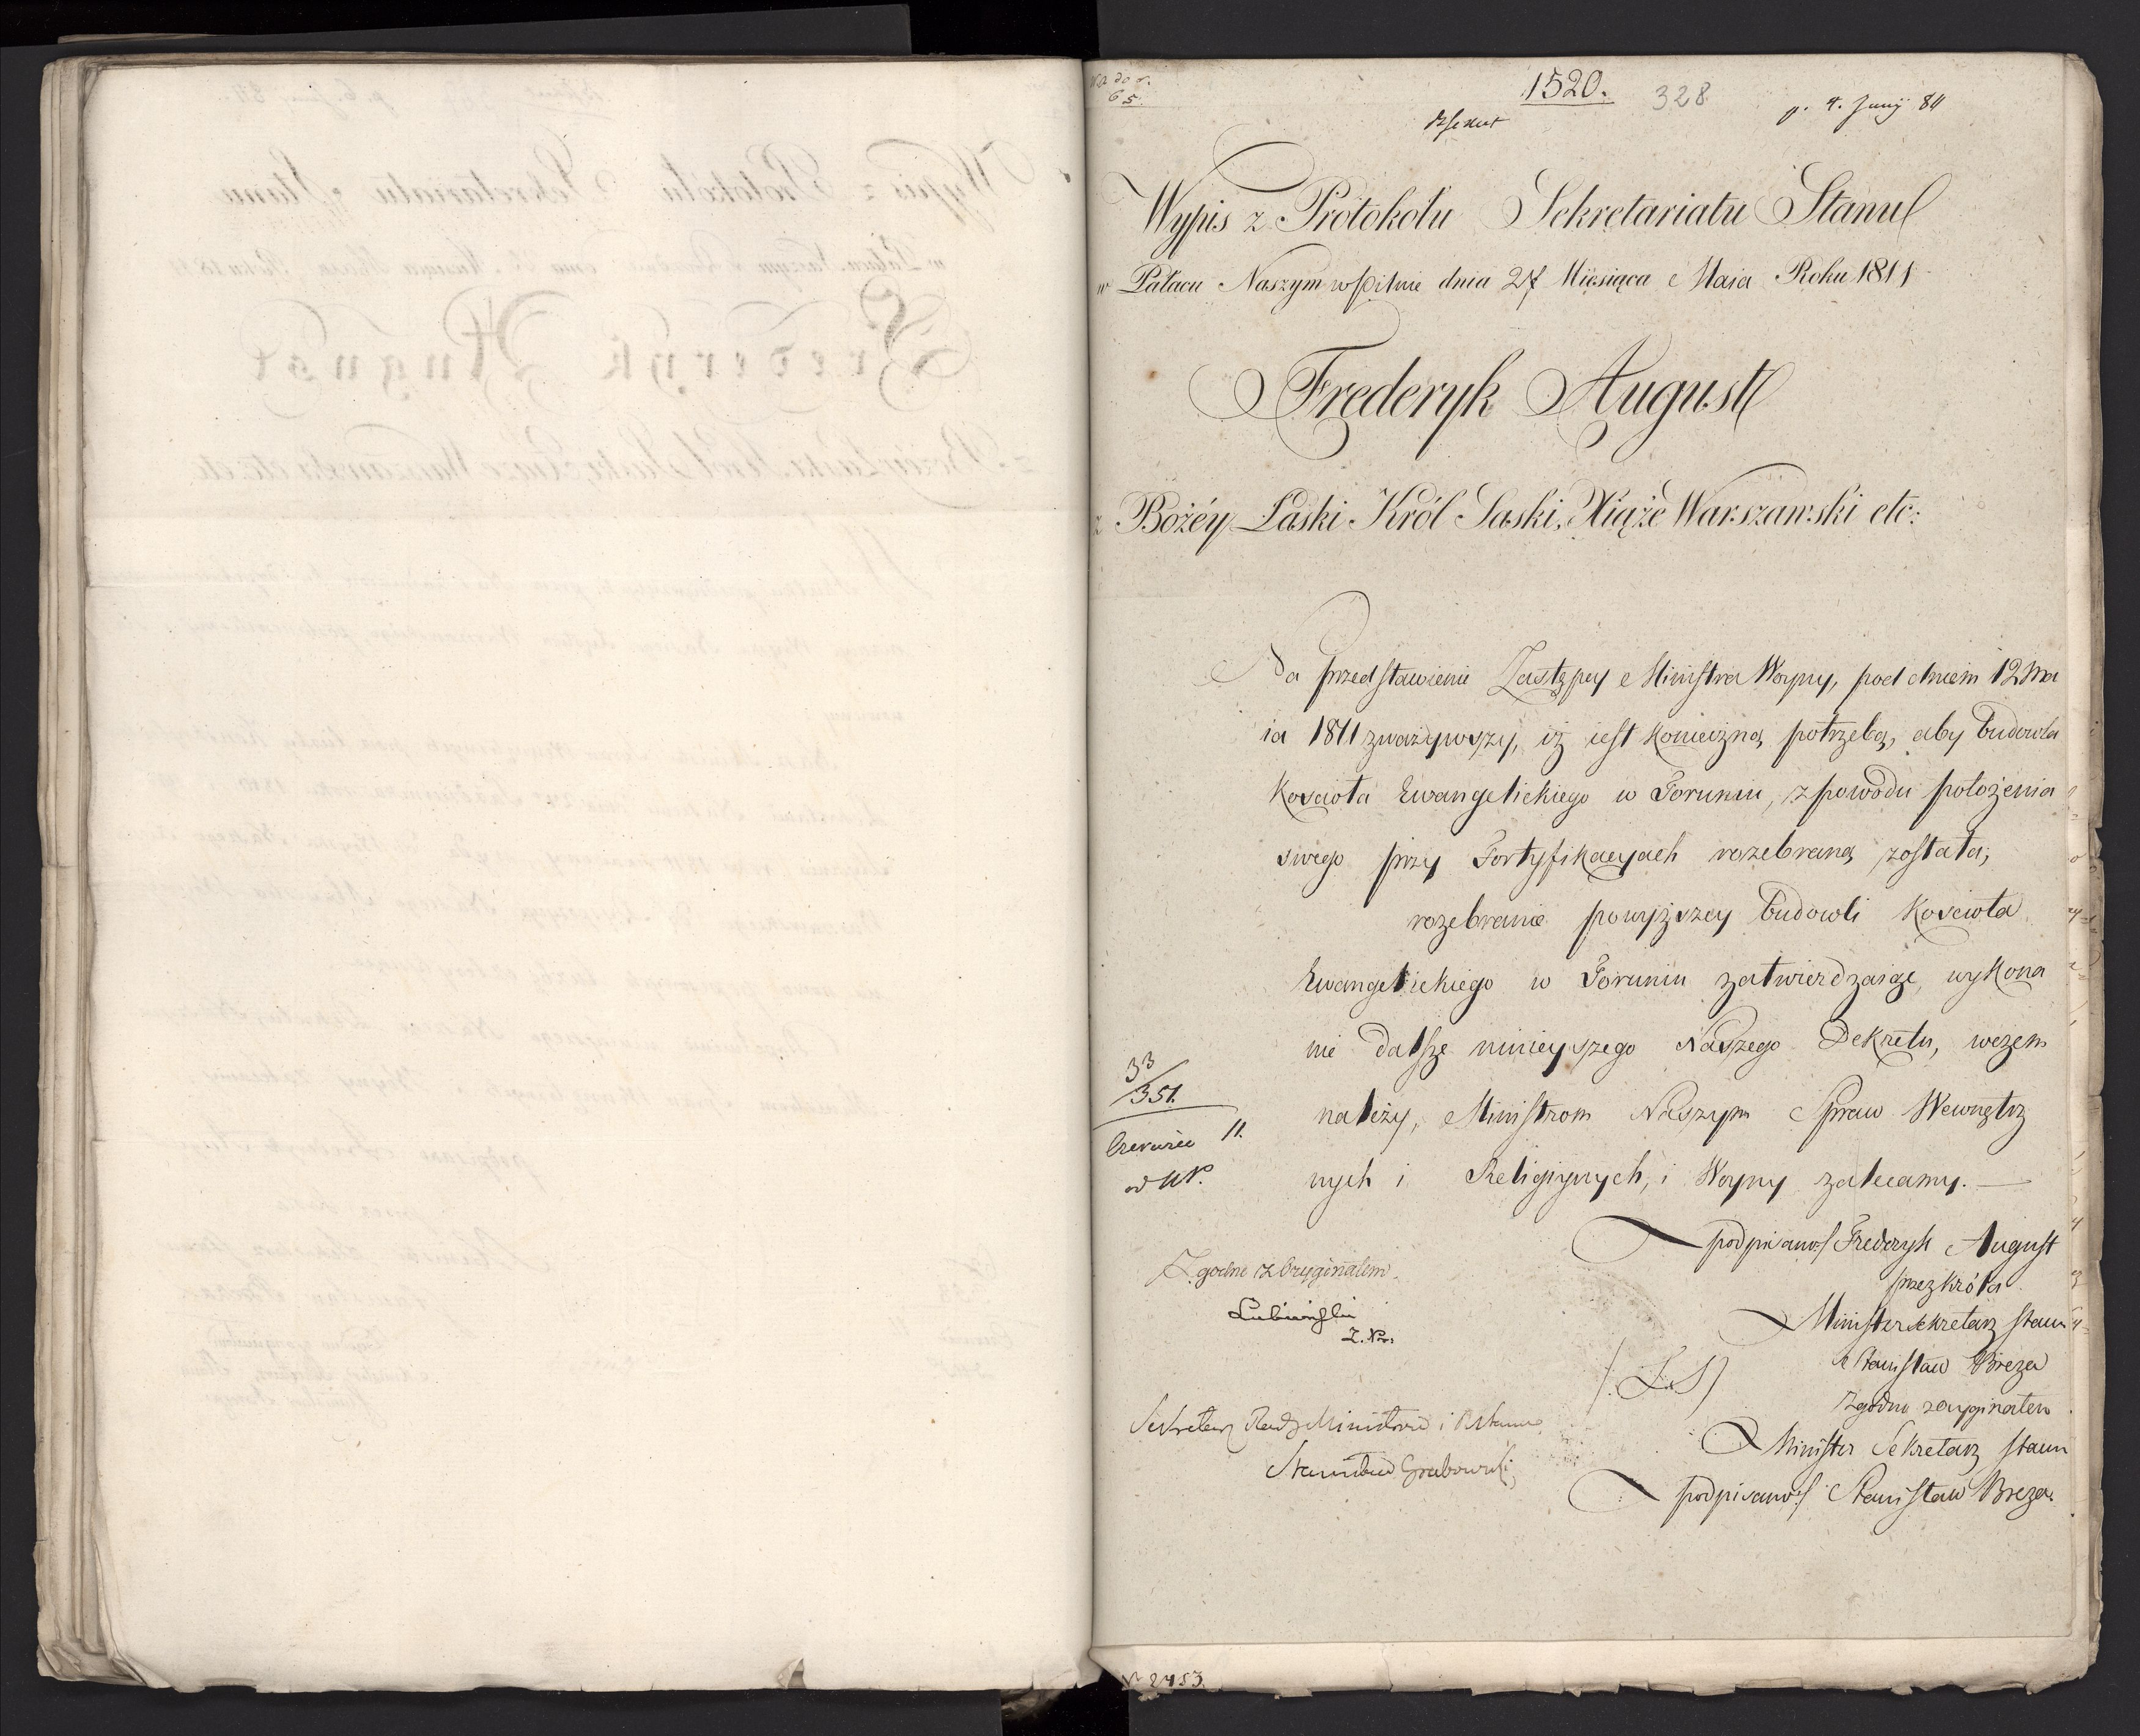 65.
1520.
328
p. 4. Junij 811
Wypis z Protokołu Sekretariatu Stanu
w Pałacu Naszym w Pilnie dnia 27 Miesiąca Maia Roku 1811
Frederyk August
z Bożéy Łaski Król Saski, Xiąże Warszawski etc:
Na przedstawienie Zastępcy Ministra Woyny, pod dniem 12 Ma
ia 1811 zważywszy, iż iest konieczną potrzebą, aby budowla
Kościoła Ewangelickiego w Toruniu, z powodu położenia
swego przy Fortyfikacyach rozebraną została,
rozebranie powyższey budowli Kościoła
Ewangelickiego w Toruniu zatwierdzaiąc, wykona
nie dalsze ninieyszego Naszego Dekretu, wczem
należy, Ministrom Naszym Spraw Wewnętrz
nych i Religiynych, i Woyny zalecamy. —
33
351.
Czerwiec 11.
podpisano/ Frederyk August
przez Króla
Minister Sekretarz Stanu
Stanisław Breza
Zgodno z oryginałem
Minister Sekretarz Stanu
podpisano/ Stanisław Breza.
(L.S)
Zgodne z Oryginałem.
Sekretarz Rady Ministrów i R. Stanu
Stanisław Grabowski
N 2453.